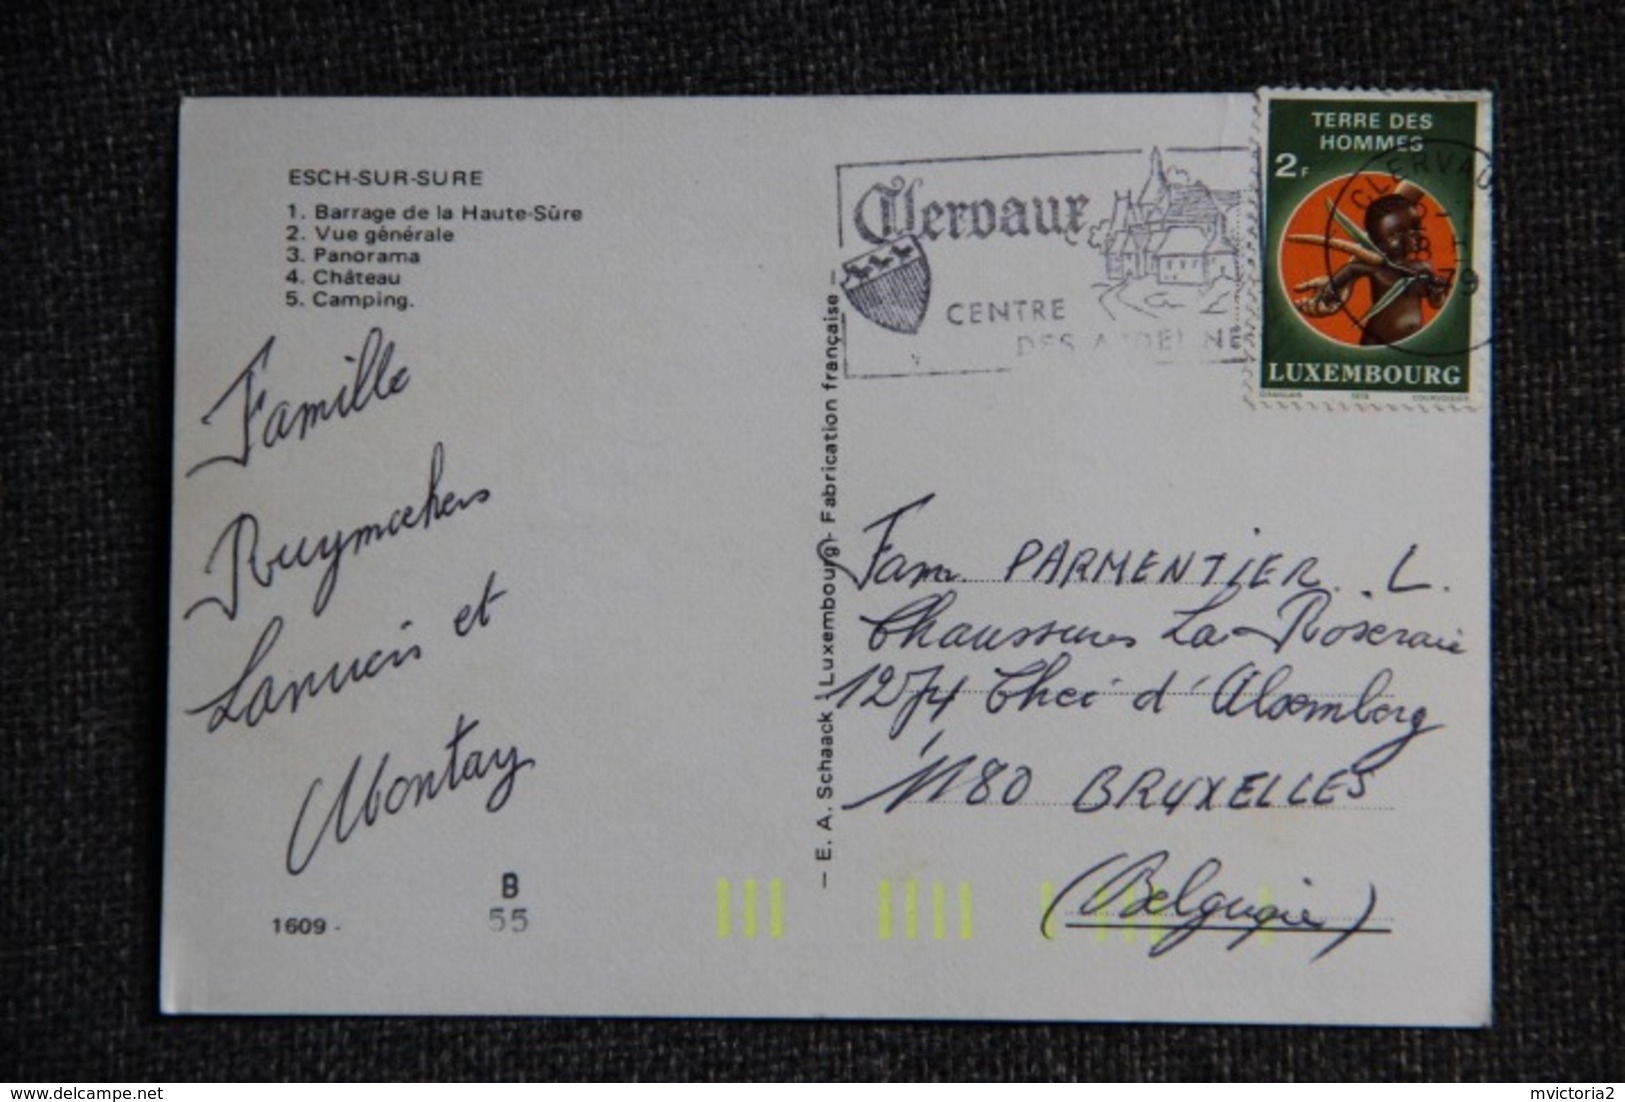 ESCH-SUR-SURE
1. Barrage de la Haute-Sûre
2. Vue générale
3. Panorama
4. Château
5. Camping.
Famille
Ruymackers
et
Montay
1609 -
B
55
— E. A. Schaack - Luxembourg - Fabrication française —
Clervaux
CENTRE
DES ARDENNE
TERRE DES
HOMMES
2F
CLERVAUX
79
LUXEMBOURG
1978
COURVOISIER
Fam. PARMENTIER. L.
Chaussures La Roseraie
1274 Chei d'Alsemberg
1180 BRUXELLES
(Belgique)
delcampe.net
mvictoria2